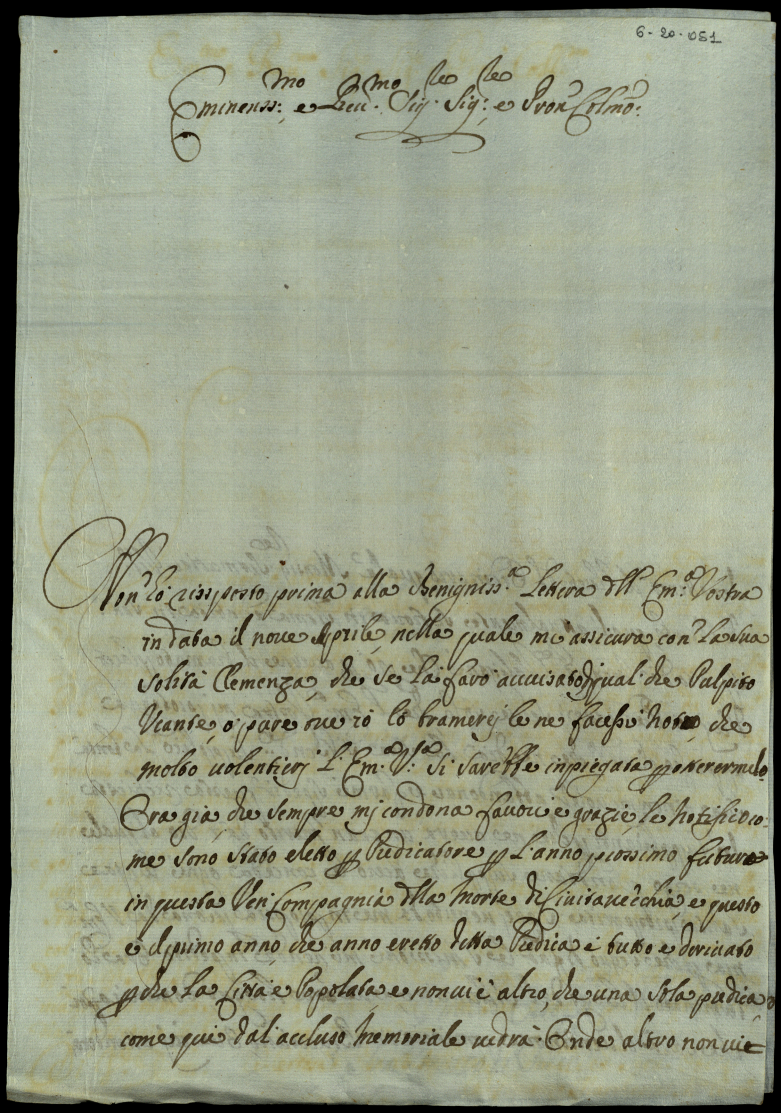 6-20-051
Eminenss:mo e Reu.mo Sig.re Sig:re e Pron Colmo:
Non ho rissposto prima alla Benigniss.a Lettera dll' Em:a Vostra
in data il noue Aprile, nella quale mi assicura con la sua
solita Clemenza, che se la farò auuisato qual che Pulpito
Vacante, o pare oue io lo bramerej le ne facessi noto, che
molto uolentierj l'Em.a V.a si sarebbe inpiegata p ottenermelo
Ora già, che sempre mj condona fauori e grazie, le notifico co-
me sono stato eletto p Predicatore p l'anno prossimo futuro
in questa Ven: Compagnia dlla Morte di Ciuitauecchia, e questo
è il primo anno, che anno eretto detta Predica e tutto e deriuato
p che la Città e Popolata e non ui è altro, che una sola predica
come qui dal accluso Memoriale uedrà. Onde altro non ui è